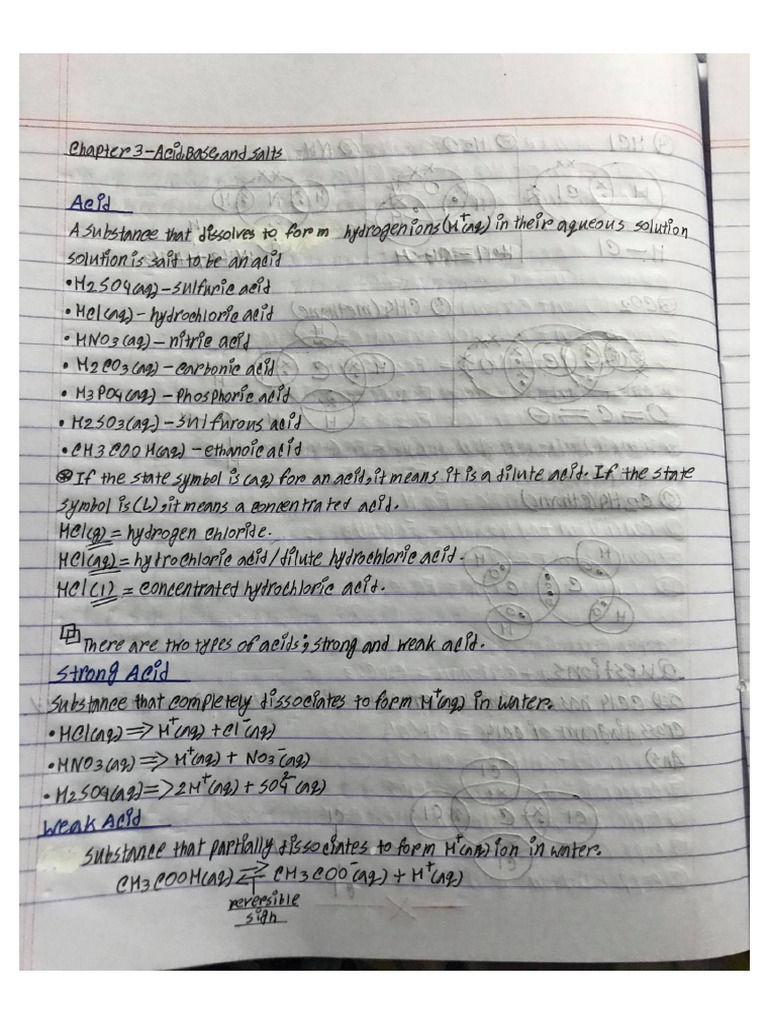 Chapter 3-Acid,Base,and salts
Acid
A substance that dissolves to form hydrogen ions(H+(aq) in their aqueous solution
solution is said to be an acid
•H2SO4(aq)-sulfuric acid
•HCl(aq)-hydrochloric acid
•HNO3(aq)-nitric acid
•H2CO3(aq)-carbonic acid
•H3PO4(aq)-Phosphoric acid
•H2SO3(aq)-sulfurous acid
•CH3COOH(aq)-ethanoic acid
⊛If the state symbol is(aq) for an acid,it means it is a dilute acid. If the state
symbol is(L),it means a concentrated acid.
HCl(g)=hydrogen chloride.
HCl(aq)=hydrochloric acid/dilute hydrochloric acid.
HCl(l)=concentrated hydrochloric acid.
There are two types of acids;strong and weak acid.
Strong Acid
Substance that completely dissociates to form H+(aq) in water.
•HCl(aq)=>H+(aq)+Cl-(aq)
•HNO3(aq)=>H+(aq)+NO3-(aq)
•H2SO4(aq)=>2H+(aq)+SO4 2-(aq)
Weak Acid
Substance that partially dissociates to form H+(aq) ion in water.
CH3COOH(aq)⇌CH3COO-(aq)+H+(aq)
reversible
sign